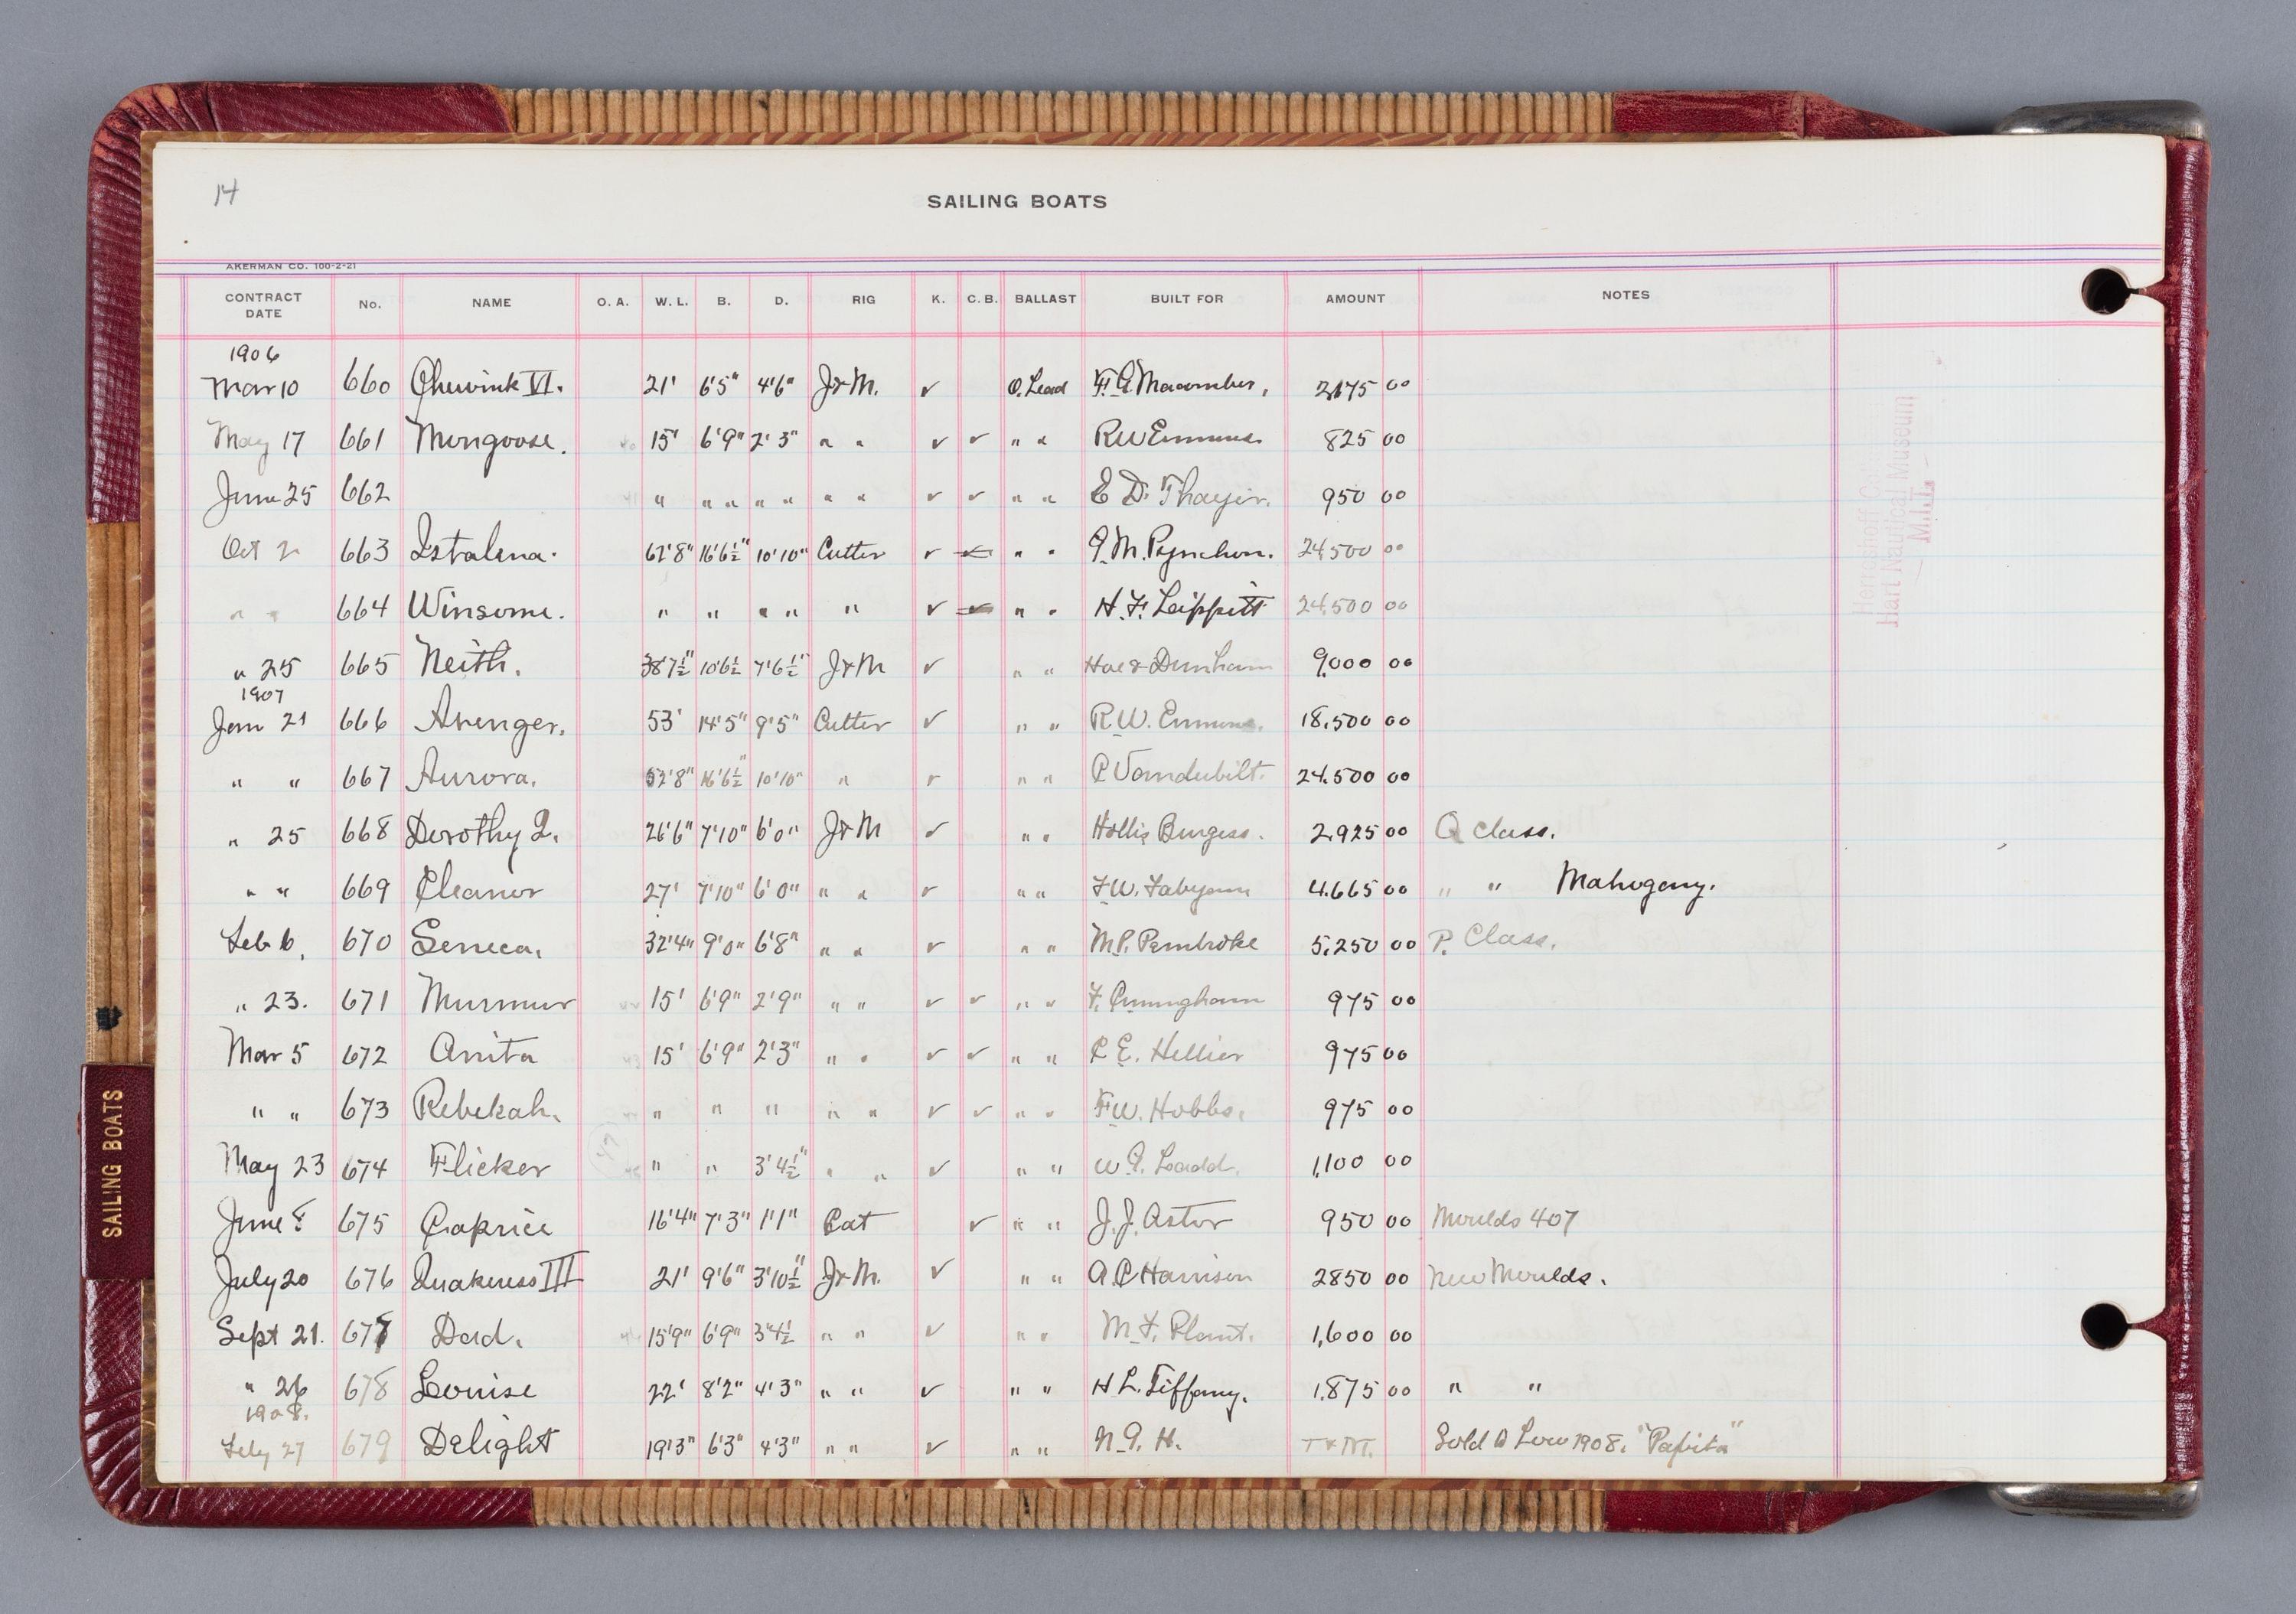 14
SAILING BOATS
AKERMAN CO. 100-2-21
CONTRACT DATE No. NAME O. A. W. L. B. D. RIG K. C. B. BALLAST BUILT FOR AMOUNT NOTES
1906
Mar 10 660 Chewink VI. 21' 6'5" 4'6" J & M. ✓ O. Lead F. G. Macomber, 2,175 00
May 17 661 Mongoose. 15' 6'9" 2'3" " " ✓ ✓ " " R W Emmons. 825 00
June 25 662 " " " " " " " ✓ ✓ " " E. D. Thayer. 950 00
Oct 2 663 Istalena. 62'8" 16'6½" 10'10" Cutter ✓ " " G. M. Pynchon. 24,500 00
" " 664 Winsome. " " " " " ✓ " " H. F. Lippitt 24,500 00
" 25 665 Neith. 38'7½" 10'6½ 7'6½" J & M ✓ " " Hoe & Dunham 9,000 00
1907
Jan 21 666 Avenger. 53' 14'5" 9'5" Cutter ✓ " " R. W. Emmons. 18,500 00
" " 667 Aurora. 62'8" 16'6½" 10'10" " ✓ " " C Vanderbilt. 24,500 00
" 25 668 Dorothy Q. 26'6" 7'10" 6'0" J & M ✓ " " Hollis Burgess. 2,925 00 Q class.
" " 669 Eleanor 27' 7'10" 6'0" " " ✓ " " F. W. Fabyan 4,665 00 " " Mahogany.
Feb 6, 670 Seneca. 32'4" 9'0" 6'8" " " ✓ " " M P. Pembroke 5,250 00 P. Class.
" 23. 671 Murmur 15' 6'9" 2'9" " " ✓ ✓ " " F. Cunningham 975 00
Mar 5 672 Anita 15' 6'9" 2'3" " " ✓ ✓ " " C E. Hellier 975 00
" " 673 Rebekah. " " " " " ✓ ✓ " " F. W. Hobbs. 975 00
May 23 674 Flicker " " 3'4½" " " ✓ " " W. G. Ladd. 1,100 00
June 675 Caprice 16'4" 7'3" 1'1" Cat ✓ " " J. J. Astor 950 00 Moulds 407
July 20 676 Quakeress III 21' 9'6" 3'10½" J & M. ✓ " " A. C Harrison 2850 00 New Moulds.
Sept 21. 677 Dad. 15'9" 6'9" 3'4½ " " ✓ " " M. F. Plant. 1,600 00
" 26 678 Louise 22' 8'2" 4'3" " " ✓ " " H L. Tiffany. 1,875 00 " "
1908.
Feby 27 679 Delight 19'3" 6'3" 4'3" " " ✓ " " N. G. H. T & M. Sold A Low 1908. "Papita"
Herreshoff C
Hart Nautical Museum
M.I.T.
SAILING BOATS